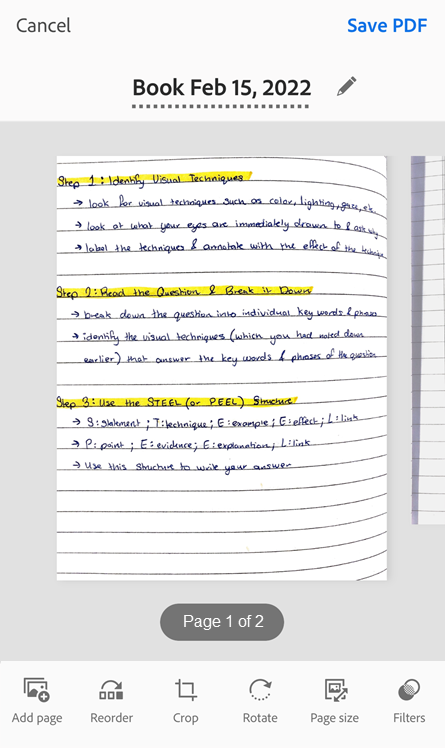 Cancel
Save PDF
Book Feb 15, 2022
Step 1: Identify Visual Techniques
→ look for visual techniques such as color, lighting, gaze, etc.
→ look at what your eyes are immediately drawn to & ask why
→ label the techniques & annotate with the effect of the technique
Step 2: Read the Question & Break it Down
→ break down the question into individual key words & phrases
→ identify the visual techniques (which you had noted down
earlier) that answer the key words & phrases of the question
Step 3: Use the STEEL (or PEEL) Structure
→ S: statement ; T: technique ; E: example ; E: effect ; L: link
→ P: point ; E: evidence ; E: explanation ; L: link
→ Use this structure to write your answer
Page 1 of 2
Add page
Reorder
Crop
Rotate
Page size
Filters